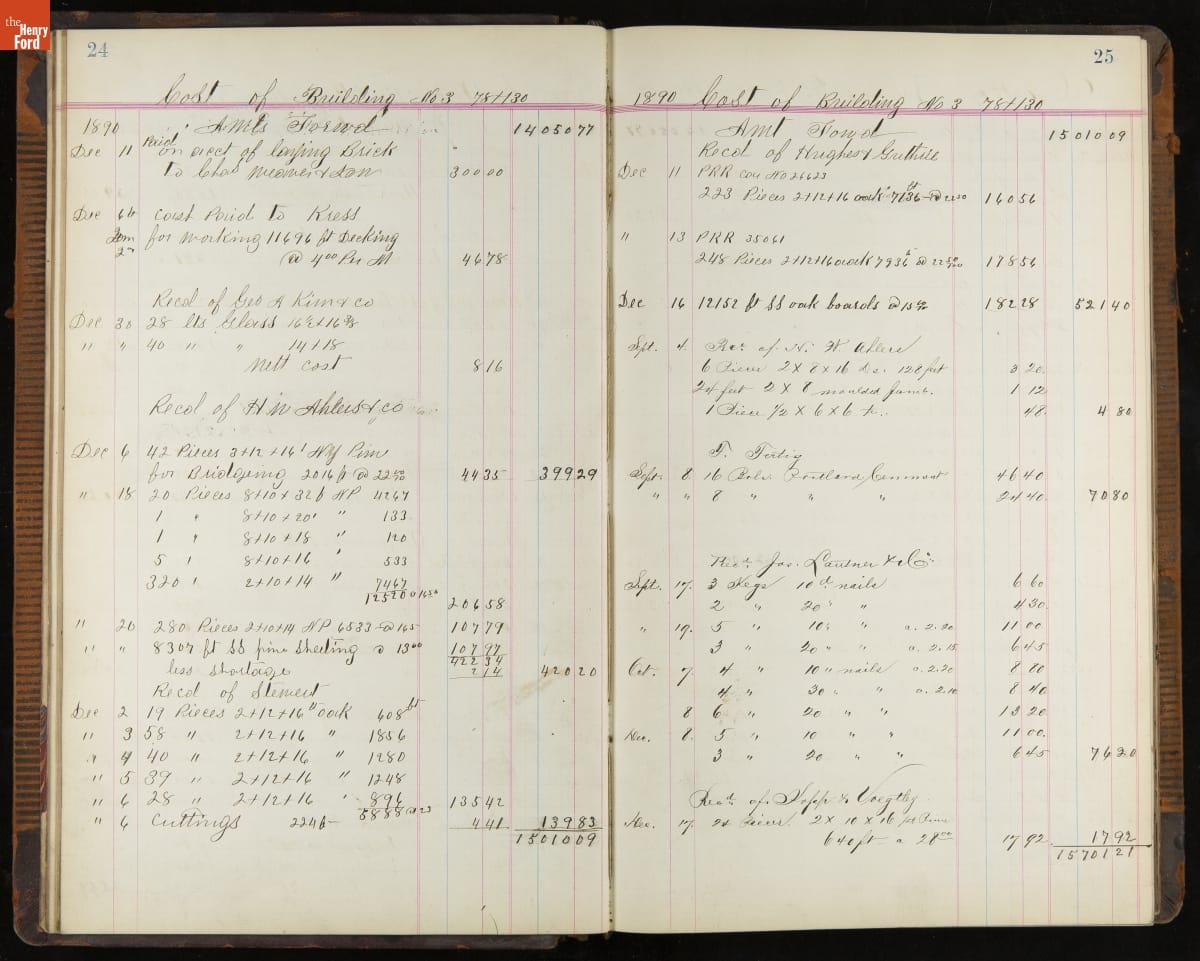 the
Henry
Ford
24
Cost of Building No 3 78+130
1890 Amts Forwd 1405077
Dec 11 Paid on acct of laying Brick
to Chas & Son 30000
Dec 6th cost Paid to Kress
for working 11696 ft Decking
@ 4 00 Per M 4678
Recd of Geo A Kim & co
Dec 30 28 lts Glass 16½+16⅜
" " 40 " " 14+18
Nett cost 816
Recd of H W Ahlers & co
Dec 6 42 Pieces 3+12+16' NY Pine
for Bridgeing 2016 ft @ 22 00 4435 39929
" 18 20 Pieces 8+10+32 ft NP 4267
1 " 8+10+20' " 133
1 " 8+10+18 " 120
5 " 8+10+16 " 533
320 " 2+10+14 " 7467
12520 @ 16 50
20658
" 20 280 Pieces 2+10+14 NP 6533 @ 165 10779
" " 8307 ft SS pine Sheeting @ 13 00 10797
42234
less shortage 214 42020
Recd of Stewert
Dec 2 19 Pieces 2+12+16 ft oak 608 ft
" 3 58 " 2+12+16 " 1856
" 4 40 " 2+12+16 " 1280
" 5 39 " 2+12+16 " 1248
" 6 28 " 2+12+16 " 896 13542
5888 @ 23
" 6 Cuttings 2246 441 13983
1501009
25
1890 Cost of Building No 3 78+130
Amt Forwd 1501009
Recd of Hughes & Guthrie
Dec 11 PRR car No 26623
223 Pieces 2+12+16 oak 7136 ft @ 22 50 16056
" 13 PRR 35061
248 Pieces 2+12+16 oak 7936 ft @ 22 50 17856
Dec 16 12152 ft SS oak boards @ 15 00 18228 52140
Sept. 4. Rec'd of H. W. Ahlers
6 Pieces 2 X 8 X 16 Do. 128 feet 3 20
24 feet 2 X 8 moulded Jamb. 1 12
1 Piece ½ X 6 X 6 48 4 80
F. Fertig
Sept. 8 16 Bbls. Portland Cemment 46 40
" " 8 " " " 24 40 70 80
Rec'd Jas. Lautner & Co.
Sept. 17. 3 Kegs 10d nails 6 60
2 " 20 " " 4 30
" 19. 5 " 10 " " a. 2.20 11 00
3 " 20 " " a. 2.15 6 45
Oct. 7. 4 " 10 " nails a. 2.20 8 80
4 " 30 " " a. 2.10 8 40
8 6 " 20 " " 13 20
Dec. 8. 5 " 10 " " 11 00
3 " 20 " " 6 45 76 20
Rec'd of Sopp & Voegtley
Dec. 17. 24 Pieces. 2 X 10 X 16 Pine
640 ft a 28 00 17 92 17 92
1570121